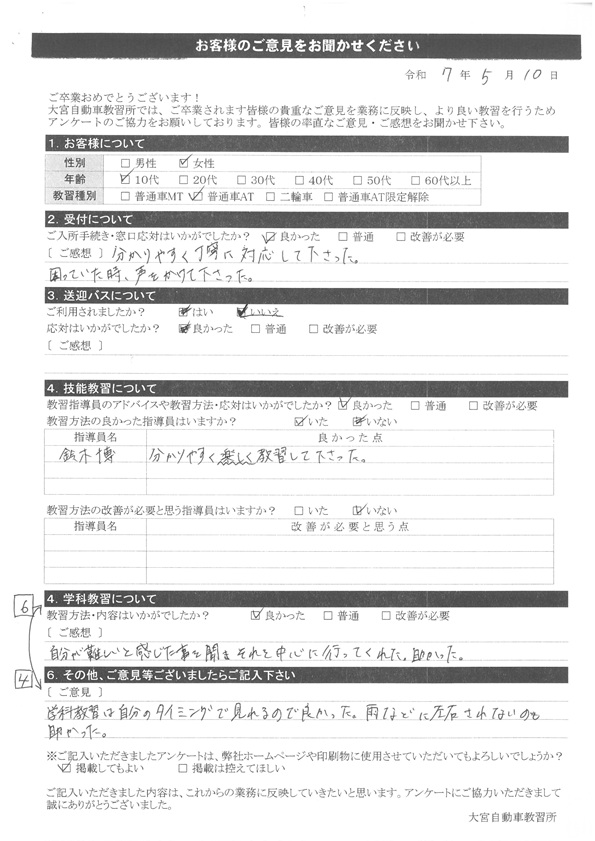 お客様のご意見をお聞かせください
令和 7 年 5 月 10 日
ご卒業おめでとうございます！
大宮自動車教習所では、ご卒業されます皆様の貴重なご意見を業務に反映し、より良い教習を行うため
アンケートのご協力をお願いしております。皆様の率直なご意見・ご感想をお聞かせ下さい。
1. お客様について
性別 □ 男性 ☑ 女性
年齢 ☑ 10代 □ 20代 □ 30代 □ 40代 □ 50代 □ 60代以上
教習種別 □ 普通車MT ☑ 普通車AT □ 二輪車 □ 普通車AT限定解除
2. 受付について
ご入所手続き・窓口応対はいかがでしたか？ ☑ 良かった □ 普通 □ 改善が必要
〔 ご感想 〕 分かりやすく丁寧に対応して下さった。
困っていた時、声をかけて下さった。
3. 送迎バスについて
ご利用されましたか？ ☑ はい ☑ いいえ
応対はいかがでしたか？ ☑ 良かった □ 普通 □ 改善が必要
〔 ご感想 〕
4. 技能教習について
教習指導員のアドバイスや教習方法・応対はいかがでしたか？ ☑ 良かった □ 普通 □ 改善が必要
教習方法の良かった指導員はいますか？ ☑ いた ☑ いない
指導員名 良かった点
鈴木博 分かりやすく楽しく教習して下さった。
教習方法の改善が必要と思う指導員はいますか？ □ いた ☑ いない
指導員名 改善が必要と思う点
6 4. 学科教習について
教習方法・内容はいかがでしたか？ ☑ 良かった □ 普通 □ 改善が必要
〔 ご感想 〕
自分が難しいと感じた事を聞き それを中心に行ってくれた。助かった。
4 6. その他、ご意見等ございましたらご記入下さい
〔 ご意見 〕
学科教習は自分のタイミングで見れるので良かった。雨などに左右されないのも
助かった。
※ご記入いただきましたアンケートは、弊社ホームページや印刷物に使用させていただいてもよろしいでしょうか？
☑ 掲載してもよい □ 掲載は控えてほしい
ご記入いただきました内容は、これからの業務に反映していきたいと思います。アンケートにご協力いただきまして
誠にありがとうございました。
大宮自動車教習所